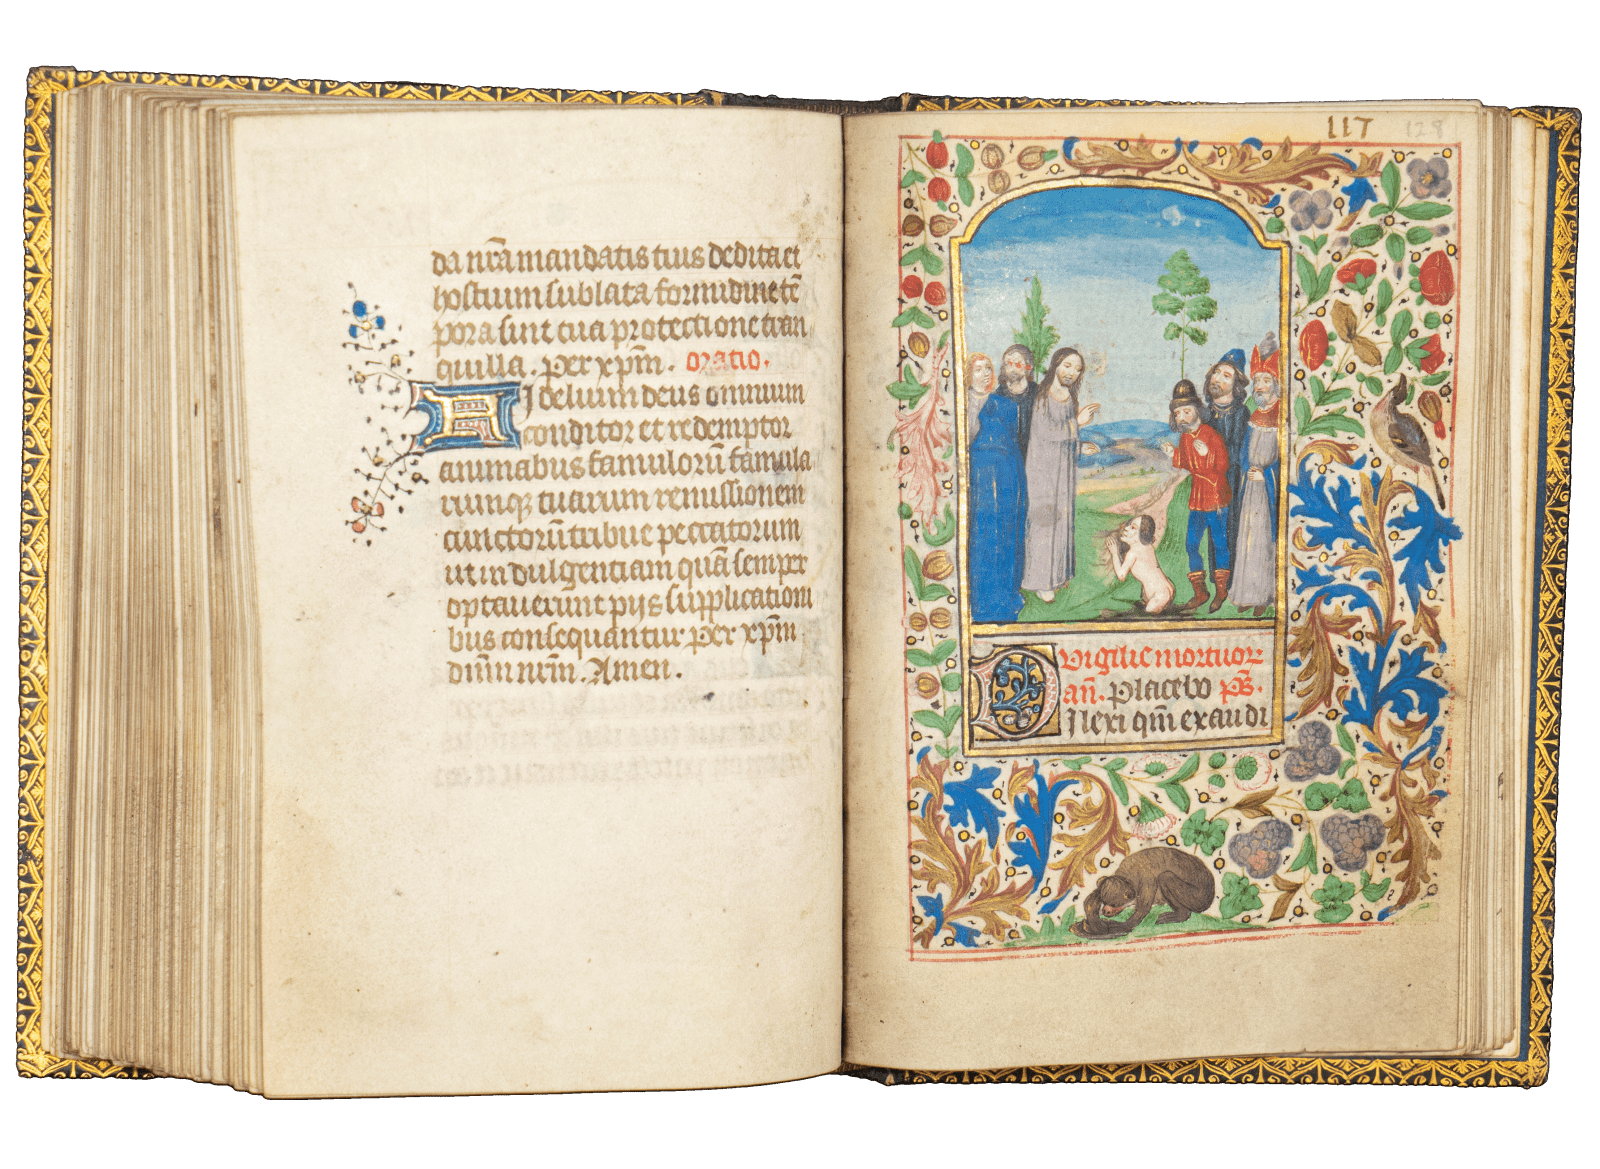 da nr̄a mandatis tuis dedita et
hostium sublata formidine tē
pora sint tua protectione tran
quilla. per xp̄m. oratio.
Fidelium deus omnium
conditor et redemptor
animabus famulorū famula
rumq; tuarum remissionem
cunctorū tribue peccatorum
ut indulgentiam quā semper
optaverunt pijs supplicationi
bus consequantur per xp̄m
dn̄m nr̄m. Amen.
117 128
Vigilie mortuorꝝ
an̄. Placebo p̄s.
Dilexi qm̄ exaudi